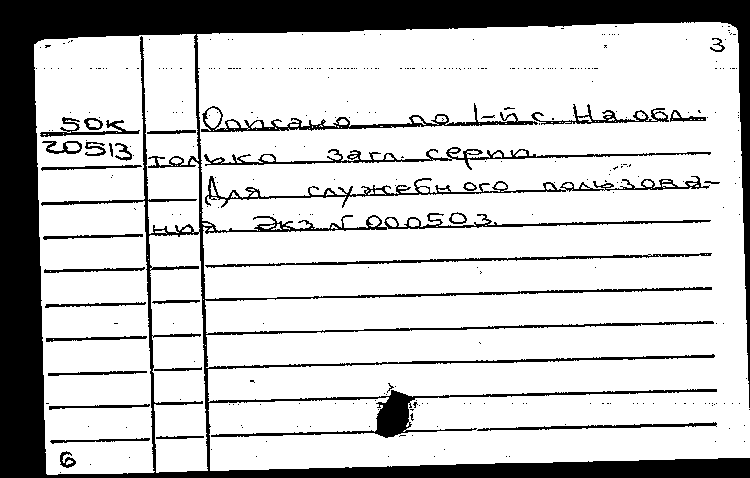 3
50К Описано по 1-й с. На обл.:
20513 только загл. серии.
Для служебного пользова-
ния. Экз N 000503.
6